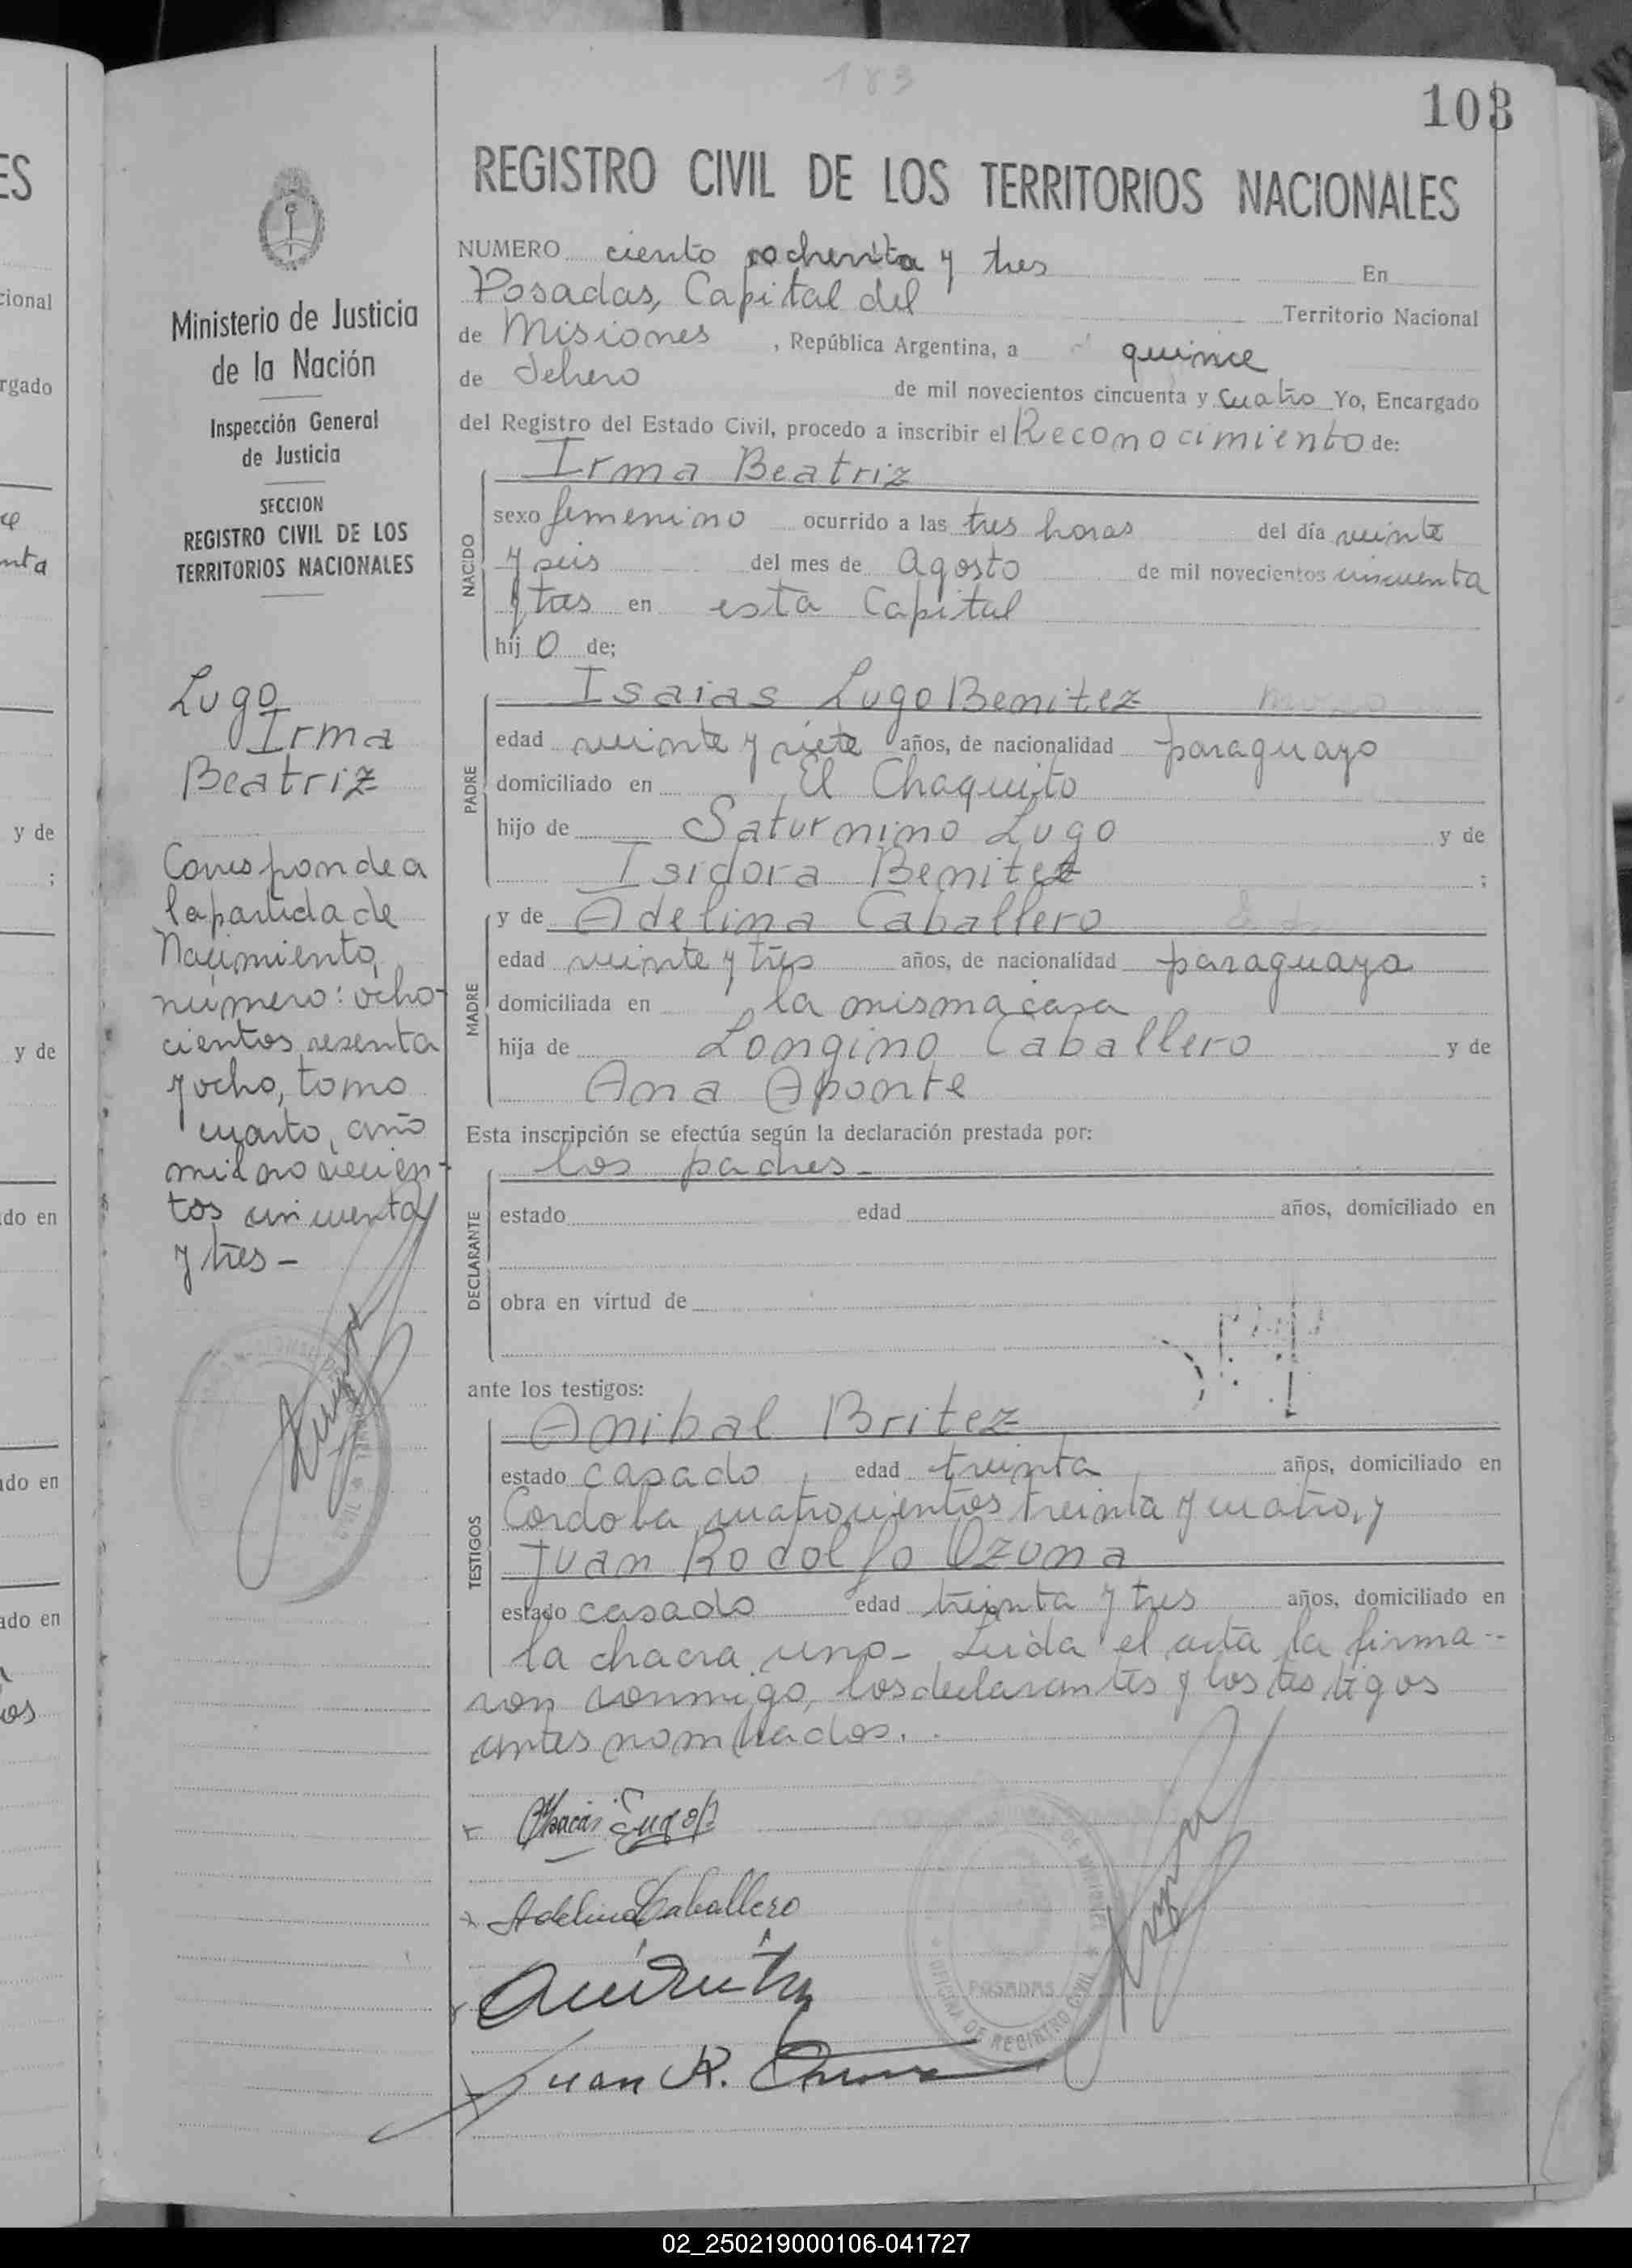 183
103
REGISTRO CIVIL DE LOS TERRITORIOS NACIONALES
NUMERO ciento ochenta y tres En
Posadas, Capital del Territorio Nacional
de Misiones, República Argentina, a quince
de de mil novecientos cincuenta y cuatro Yo, Encargado
del Registro del Estado Civil, procedo a inscribir el Reconocimiento de:
NACIDO
Irma Beatriz
sexo femenino ocurrido a las tres horas del día veinte
y seis del mes de Agosto de mil novecientos cincuenta
y tres en esta Capital
hij o de;
PADRE
Isaias Lugo Benitez
edad veinte y siete años, de nacionalidad paraguayo
domiciliado en El Chaquito
hijo de Saturnino Lugo y de
Isidora Benitez ;
MADRE
y de Adelina Caballero
edad veinte y tres años, de nacionalidad paraguaya
domiciliada en la misma casa
hija de Longino Caballero y de
Ana Aponte
Esta inscripción se efectúa según la declaración prestada por:
DECLARANTE
los padres -
estado edad años, domiciliado en
obra en virtud de
ante los testigos:
TESTIGOS
Anibal Britez
estado casado, edad treinta, años, domiciliado en
Cordoba cuatrocientos treinta y cuatro, y
Juan Rodolfo Ozuna
estado casado edad treinta y tres años, domiciliado en
la chacra uno - Leida el acta la firma-
ron conmigo, los declarantes y los testigos
antes nombrados.
Adelina Caballero
Juan R.
OFICINA DE REGISTRO CIVIL
POSADAS
Ministerio de Justicia
de la Nación
Inspección General
de Justicia
SECCION
REGISTRO CIVIL DE LOS
TERRITORIOS NACIONALES
Lugo
Irma
Beatriz
Corresponde a
la partida de
Nacimiento,
número: ocho-
cientos sesenta
y ocho, tomo
cuarto, año
mil novecien-
tos cincuenta
y tres -
ES
cional
rgado
y de
;
y de
do en
do en
ado en
02_250219000106-041727